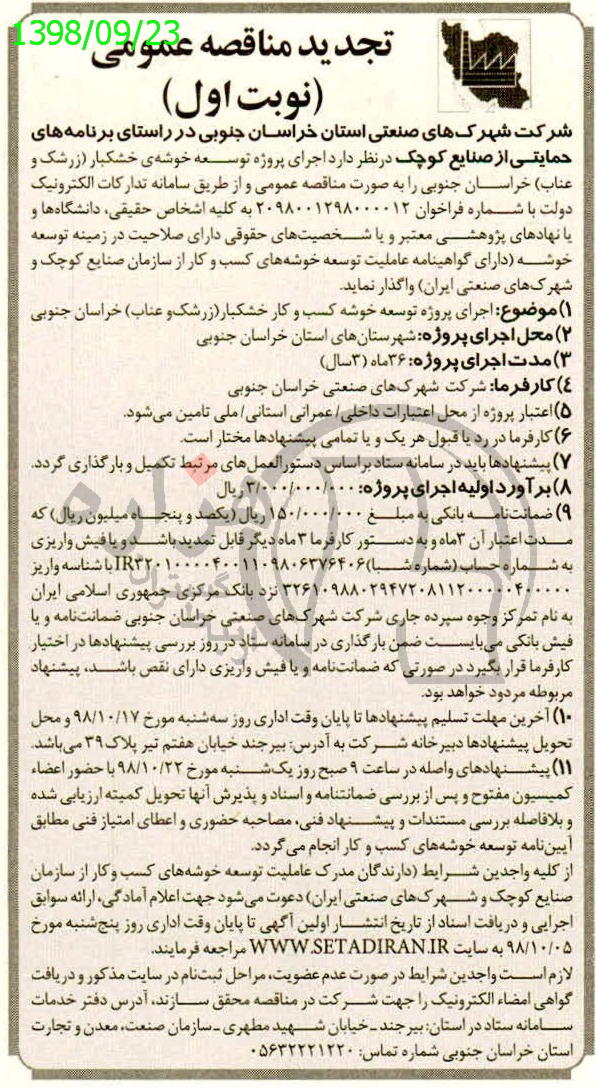 1398/09/23
تجدید مناقصه عمومی
(نوبت اول)
شرکت شهرک‌های صنعتی استان خراسان جنوبی در راستای برنامه‌های
حمایتی از صنایع کوچک درنظر دارد اجرای پروژه توسعه خوشه‌ی خشکبار (زرشک و
عناب) خراسان جنوبی را به صورت مناقصه عمومی و از طریق سامانه تدارکات الکترونیک
دولت با شماره فراخوان ۲۰۹۸۰۰۱۲۹۸۰۰۰۰۱۲ به کلیه اشخاص حقیقی، دانشگاه‌ها و
یا نهادهای پژوهشی معتبر و یا شخصیت‌های حقوقی دارای صلاحیت در زمینه توسعه
خوشه (دارای گواهینامه عاملیت توسعه خوشه‌های کسب و کار از سازمان صنایع کوچک و
شهرک‌های صنعتی ایران) واگذار نماید.
۱)موضوع: اجرای پروژه توسعه خوشه کسب و کار خشکبار(زرشک و عناب) خراسان جنوبی
۲)محل اجرای پروژه: شهرستان‌های استان خراسان جنوبی
۳)مدت اجرای پروژه: ۳۶ماه (۳سال)
۴)کارفرما: شرکت شهرک‌های صنعتی خراسان جنوبی
۵)اعتبار پروژه از محل اعتبارات داخلی/عمرانی استانی/ملی تامین می‌شود.
۶)کارفرما در رد یا قبول هر یک و یا تمامی پیشنهادها مختار است.
۷) پیشنهادها باید در سامانه ستاد براساس دستورالعمل‌های مرتبط تکمیل و بارگذاری گردد.
۸)برآورد اولیه اجرای پروژه: ۳/۰۰۰/۰۰۰/۰۰۰ ریال
۹) ضمانت‌نامه بانکی به مبلغ ۱۵۰/۰۰۰/۰۰۰ ریال (یکصد و پنجاه میلیون ریال) که
مدت اعتبار آن ۳ماه و به دستور کارفرما ۳ماه دیگر قابل تمدید باشد و یا فیش واریزی
به شماره حساب (شماره شبا) IR۳۲۰۱۰۰۰۰۴۰۰۱۱۰۹۸۰۶۳۷۶۴۰۶ با شناسه واریز
۳۲۶۱۰۹۸۸۰۲۹۴۷۲۰۸۱۱۲۰۰۰۰۰۴۰۰۰۰۰ نزد بانک مرکزی جمهوری اسلامی ایران
به نام تمرکز وجوه سپرده جاری شرکت شهرک‌های صنعتی خراسان جنوبی ضمانت‌نامه و یا
فیش بانکی می‌بایست ضمن بارگذاری در سامانه ستاد در روز بررسی پیشنهادها در اختیار
کارفرما قرار بگیرد در صورتی که ضمانت‌نامه و یا فیش واریزی دارای نقص باشد، پیشنهاد
مربوطه مردود خواهد بود.
۱۰) آخرین مهلت تسلیم پیشنهادها تا پایان وقت اداری روز سه‌شنبه مورخ ۹۸/۱۰/۱۷ و محل
تحویل پیشنهادها دبیرخانه شرکت به آدرس: بیرجند خیابان هفتم تیر پلاک ۳۹ می‌باشد.
۱۱) پیشنهادهای واصله در ساعت ۹ صبح روز یک‌شنبه مورخ ۹۸/۱۰/۲۲ با حضور اعضاء
کمیسیون مفتوح و پس از بررسی ضمانتنامه و اسناد و پذیرش آنها تحویل کمیته ارزیابی شده
و بلافاصله بررسی مستندات و پیشنهاد فنی، مصاحبه حضوری و اعطای امتیاز فنی مطابق
آیین‌نامه توسعه خوشه‌های کسب و کار انجام می‌گردد.
از کلیه واجدین شرایط (دارندگان مدرک عاملیت توسعه خوشه‌های کسب وکار از سازمان
صنایع کوچک و شهرک‌های صنعتی ایران) دعوت می‌شود جهت اعلام آمادگی، ارائه سوابق
اجرایی و دریافت اسناد از تاریخ انتشار اولین آگهی تا پایان وقت اداری روز پنج‌شنبه مورخ
۹۸/۱۰/۰۵ به سایت WWW.SETADIRAN.IR مراجعه فرمایند.
لازم است واجدین شرایط در صورت عدم عضویت، مراحل ثبت‌نام در سایت مذکور و دریافت
گواهی امضاء الکترونیک را جهت شرکت در مناقصه محقق سازند، آدرس دفتر خدمات
سامانه ستاد در استان: بیرجند ـ خیابان شهید مطهری ـ سازمان صنعت، معدن و تجارت
استان خراسان جنوبی شماره تماس: ۰۵۶۳۲۲۲۱۲۲۰